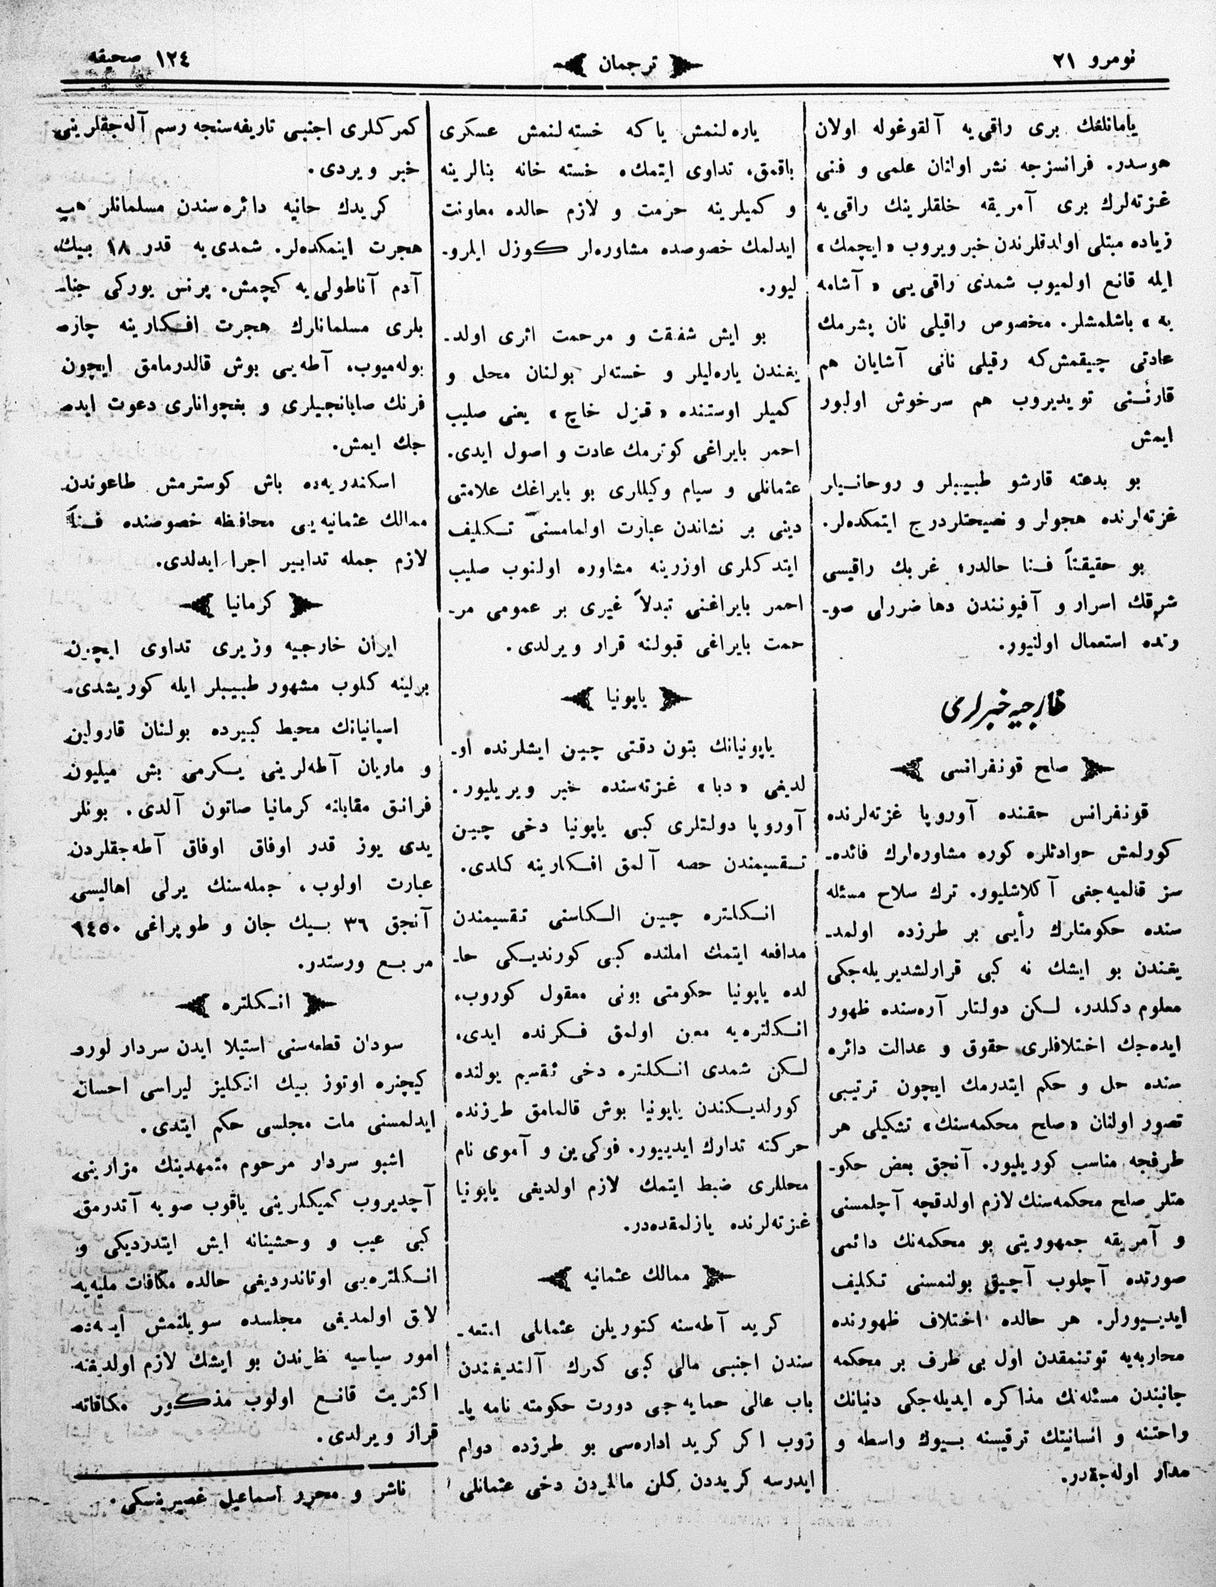 نومرو ٢١
ترجمان
١٢٤ صحیفه
یامانلغك بری راقی‌یه آلقوغوله اولان
هوسدر. فرانسزجه نشر اولنان علمی و فنی
غزته‌لرك بری آمریقه خلقلرینك راقی‌یه
زیاده مبتلی اولدقلرندن خبر ویروب «ایچمك»
ایله قانع اولمیوب شمدی راقی‌یی « آشامه
یه » باشلمشلر. مخصوص راقیلی نان پشرمك
عادتی چیقمش‌که رقیلی نانی آشایان هم
قارنـنی تویدیروب هم سرخوش اولیور
ایمش
بو بدعته قارشو طبیبلر و روحانـیلر
غزته‌لرنده هجولر و نصیحتلردرج ایتمکده‌لر.
بو حقیقتاً فـنا حالدر؛ غربك راقیسی
شرقك اسرار و آفیونندن دها ضررلی صو-
رتده استعمال اولنیور.
خارجیه خبرلری
صلح قونفرانسی
قونفرانس حقنده آوروپا غزته‌لرنده
کورلمش حوادثلره کوره مشاوره‌لرك فائده-
سز قالمیه‌جغی آکلاشلیور. ترك سلاح مسئله
سنده حکومتلرك رأیی بر طرزده اولمد-
یغندن بو ایشك نه کبی قرارلشدیریله‌جکی
معلوم دکلدر، لـکن دولتلر آره‌سنده ظهور
ایده‌جك اختلافلری حقوق و عدالت دائره
سنده حل و حکم ایتدرمك ایچون ترتیبی
تصور اولنان «صلح محکمه‌سنك» تشکیلی هر
طرفجه مناسب کوریلیور. آنجق بعض حکو-
متلر صلح محکمه‌سنك لازم اولدقچه آچلمسنی
و آمریقه جمهوریتی بو محکمه‌نك دائمی
صورتده آچلوب آچیق بولنمسنی تکلیف
ایدیـیورلر. هر حالده اختلاف ظهورنده
محاربه‌یه توتنمقدن اول بی طرف بر محکمه
جانبندن مسئله‌نك مذاکره ایدیله‌جکی دنیانك
راحتـنه و انسانیتك ترقیسنه بـیوك واسطه و
مدار اوله‌جقدر.
یاره‌لنمش یا‌که خسته‌لنمش عسکری
باقمق، تداوی ایتمك، خسته خانه بنالرینه
و کمیلرینه حرمت و لازم حالده معاونت
ایدلمك خصوصده مشاوره‌لر کوزل ایلرو-
لیور.
بو ایش شفقت و مرحمت اثری اولد-
یغندن یاره‌لیلر و خسته‌لر بولنان محل و
کمیلر اوستنده «قزل خاچ» یعنی صلیب
احمر بایراغی کوترمك عادت و اصول ایدی.
عثمانلی و سیام وکیللری بو بایراغك علامتی
دینی بر نشاندن عبارت اولمامسنی تـکلیف
ایتدکلری اوزرینه مشاوره اولنوب صلیب
احمر بایراغنی تبدلاً غیری بر عمومی مر-
حمت بایراغی قبولنه قرار ویرلدی.
یاپونیا
یاپونیانك بتون دقتی چین ایشلرنده او-
لدیغی «دبا» غزته‌سنده خبر ویریلیور.
آوروپا دولتلری کبی یاپونیا دخی چین
تـقسیمندن حصه آلمق افـکارینه کلدی.
انـکلتره چین الـکاسنی تـقسیمندن
مدافعه ایتمك املنده کبی کورندیـکی حا-
لده یاپونیا حکومتی بونی معقول کوروب،
انـکلتره‌یه معین اولمق فـکرنده ایدی،
لـکن شمدی انـکلتره دخی تقسیم یولنده
کورلدیـکندن یاپونیا بوش قالمامق طرزنده
حرکته تدارك ایدیـیور. فوکی‌ین و آموی نام
محللری ضبط ایتمك لازم اولدیغی یاپونیا
غزته‌لرنده یازلمقده‌در.
ممالك عثمانیه
کرید آطه‌سنه کتوریلن عثمانلی امتعه-
سندن اجنبی مالی کبی کمرك آلندیغندن
باب عالی حمایه‌جی دورت حکومته نامه یا-
زوب اکر کرید اداره‌سی بو طرزده دوام
ایدرسه کریددن کلن ماللردن دخی عثمانلی
کمرکلری اجنبی تاریفه‌سنجه رسم آله‌جقلرینی
خبر ویردی.
کریدك حانیه دائره‌سندن مسلمانلر هپ
هجرت ایتمکده‌لر. شمدی‌یه قدر ١٨ بیك
آدم آناطولی‌یه کچمش. پرنس یورکی جنا-
بلری مسلمانلرك هجرت افـکارینه چاره
بوله‌میوب، آطه‌یی بوش قالدرمامق ایچون
فرنك صاپانجیلری و بغچوانلری دعوت ایده
جك ایمش.
اسکندریه‌ده باش کوسترمش طاعوندن
ممالك عثمانیه‌یی محافظه خصوصنده فـناً
لازم جمله تدابیر اجرا ایدلدی.
کرمانیا
ایران خارجیه وزیری تداوی ایچین
برلینه کلوب مشهور طبیبلر ایله کوریشدی.
اسپانیانك محیط کبیرده بولنان قارولین
و ماریان آطه‌لرینی یـکرمی بش میلیون
فرانق مقابلنه کرمانیا صاتون آلدی. بونلر
یدی یوز قدر اوفاق اوفاق آطه‌جقلردن
عبارت اولوب، جمله‌سنك یرلی اهالیسی
آنجق ٣٦ بـیك جان و طوپراغی ٩٤٥٠
مربـع ورستدر.
انـکلتره
سودان قطعه‌سنی استیلا ایدن سردار لورد
کیچنره اوتوز بیك انکلیز لیراسی احسان
ایدلمسنی ملت مجلسی حکم ایتدی.
اشبو سردار مرحوم متمهدینك مزارینی
آچدیروب کمیکلرینی یاقوب صویه آتدرمق
کبی عیب و وحشیانه ایش ایتدزدیکی و
انـکلتره‌یی اوتاندردیغی حالده مکافات ملیه‌یه
لایق اولمدیغی مجلسده سویلنمش ایـه‌ده
امور سیاسیه نظرندن بو ایشك لازم اولدیغنه
اکثریت قانـع اولوب مذکور مکافاته
قرار ویرلدی.
ناشر و محرر اسماعیل غصپرینسکی.